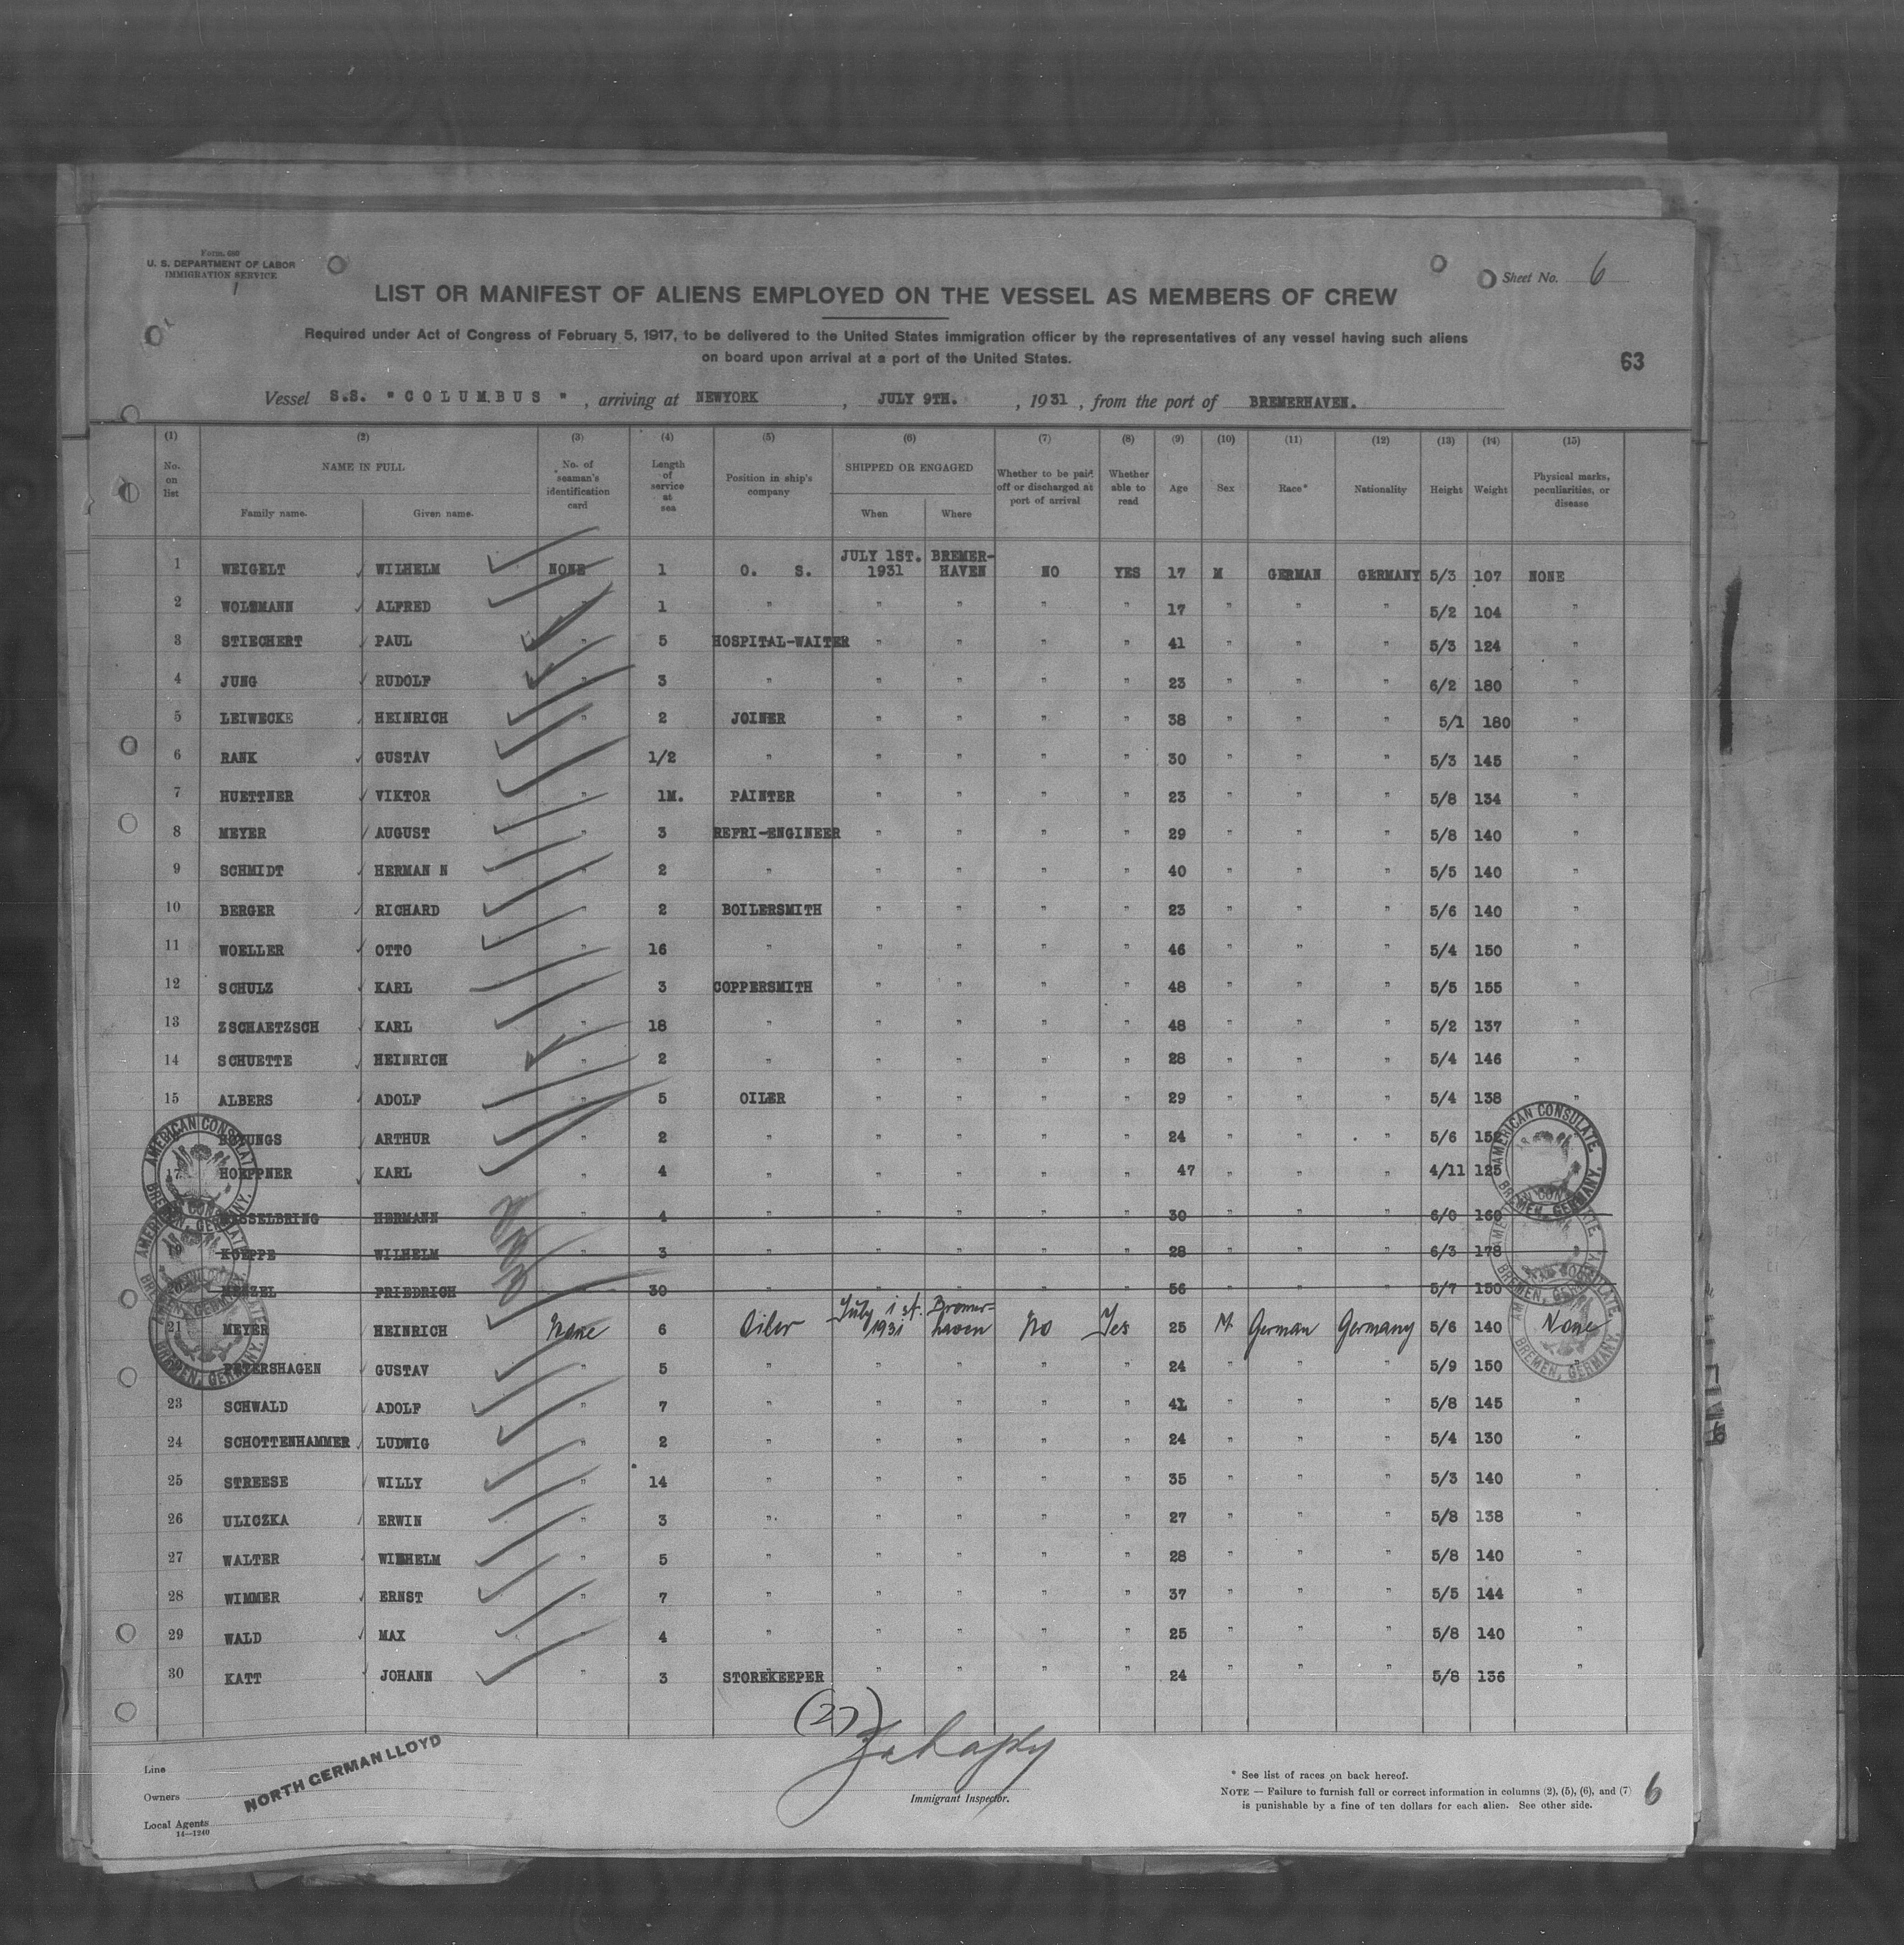 Form 680
U. S. DEPARTMENT OF LABOR
IMMIGRATION SERVICE
1
Sheet No. 6
LIST OR MANIFEST OF ALIENS EMPLOYED ON THE VESSEL AS MEMBERS OF CREW
Required under Act of Congress of February 5, 1917, to be delivered to the United States immigration officer by the representatives of any vessel having such aliens
on board upon arrival at a port of the United States.
63
Vessel S.S. "COLUMBUS", arriving at NEWYORK, JULY 9TH., 1931, from the port of BREMERHAVEN.
(1) (2) (3) (4) (5) (6) (7) (8) (9) (10) (11) (12) (13) (14) (15)
No. on list NAME IN FULL Family name. Given name. No. of seaman's identification card Length of service at sea Position in ship's company SHIPPED OR ENGAGED When Where Whether to be paid off or discharged at port of arrival Whether able to read Age Sex Race* Nationality Height Weight Physical marks, peculiarities, or disease
1 WEIGELT WILHELM NONE 1 O. S. JULY 1ST. 1931 BREMER-HAVEN NO YES 17 M GERMAN GERMANY 5/3 107 NONE
2 ALFRED " 1 " " " " " 17 " " " 5/2 104 "
3 STIECHERT PAUL " 5 HOSPITAL-WAITER " " " " 41 " " " 5/3 124 "
4 JUNG RUDOLF " 3 " " " " " 23 " " " 6/2 180 "
5 LEIWECKE HEINRICH " 2 JOINER " " " " 38 " " " 5/1 180 "
6 RANK GUSTAV " 1/2 " " " " " 30 " " " 5/3 145 "
7 HUETTNER VIKTOR " 1M. PAINTER " " " " 23 " " " 5/8 134 "
8 MEYER AUGUST " 3 REFRI-ENGINEER " " " " 29 " " " 5/8 140 "
9 SCHMIDT HERMAN N " 2 " " " " " 40 " " " 5/5 140 "
10 BERGER RICHARD " 2 BOILERSMITH " " " " 23 " " " 5/6 140 "
11 WOELLER OTTO " 16 " " " " " 46 " " " 5/4 150 "
12 SCHULZ KARL " 3 COPPERSMITH " " " " 48 " " " 5/5 155 "
13 ZSCHAETZSCH KARL " 18 " " " " " 48 " " " 5/2 137 "
14 SCHUETTE HEINRICH " 2 " " " " " 28 " " " 5/4 146 "
15 ALBERS ADOLF " 5 OILER " " " " 29 " " " 5/4 138 "
ARTHUR " 2 " " " " " 24 " " " 5/6 152
17 HOEPPNER KARL " 4 " " " " " 47 " " " 4/11 125
HERMANN 4 " " " " " 30 " " " 6/0 160
19 KOEPPE WILHELM 3 " " " " " 28 " " " 6/3 178
FRIEDRICH 30 " " " " " 56 " " " 5/7 150
21 MEYER HEINRICH None 6 Oiler July 1st. 1931 Bremer-haven No Yes 25 M. German Germany 5/6 140 None
PETERSHAGEN GUSTAV " 5 " " " " " 24 " " " 5/9 150 "
23 SCHWALD ADOLF " 7 " " " " " 41 " " " 5/8 145 "
24 SCHOTTENHAMMER LUDWIG " 2 " " " " " 24 " " " 5/4 130 "
25 STREESE WILLY " 14 " " " " " 35 " " " 5/3 140 "
26 ULICZKA ERWIN " 3 " " " " " 27 " " " 5/8 138 "
27 WALTER WILHELM " 5 " " " " " 28 " " " 5/8 140 "
28 WIMMER ERNST " 7 " " " " " 37 " " " 5/5 144 "
29 WALD MAX " 4 " " " " " 25 " " " 5/8 140 "
30 KATT JOHANN " 3 STOREKEEPER " " " " 24 " " " 5/8 136 "
AMERICAN CONSULATE BREMEN, GERMANY.
AMERICAN CONSULATE BREMEN, GERMANY.
(27)
Line
Owners
Local Agents
14—1240
NORTH GERMAN LLOYD
Immigrant Inspector.
* See list of races on back hereof.
NOTE — Failure to furnish full or correct information in columns (2), (5), (6), and (7)
is punishable by a fine of ten dollars for each alien. See other side.
6